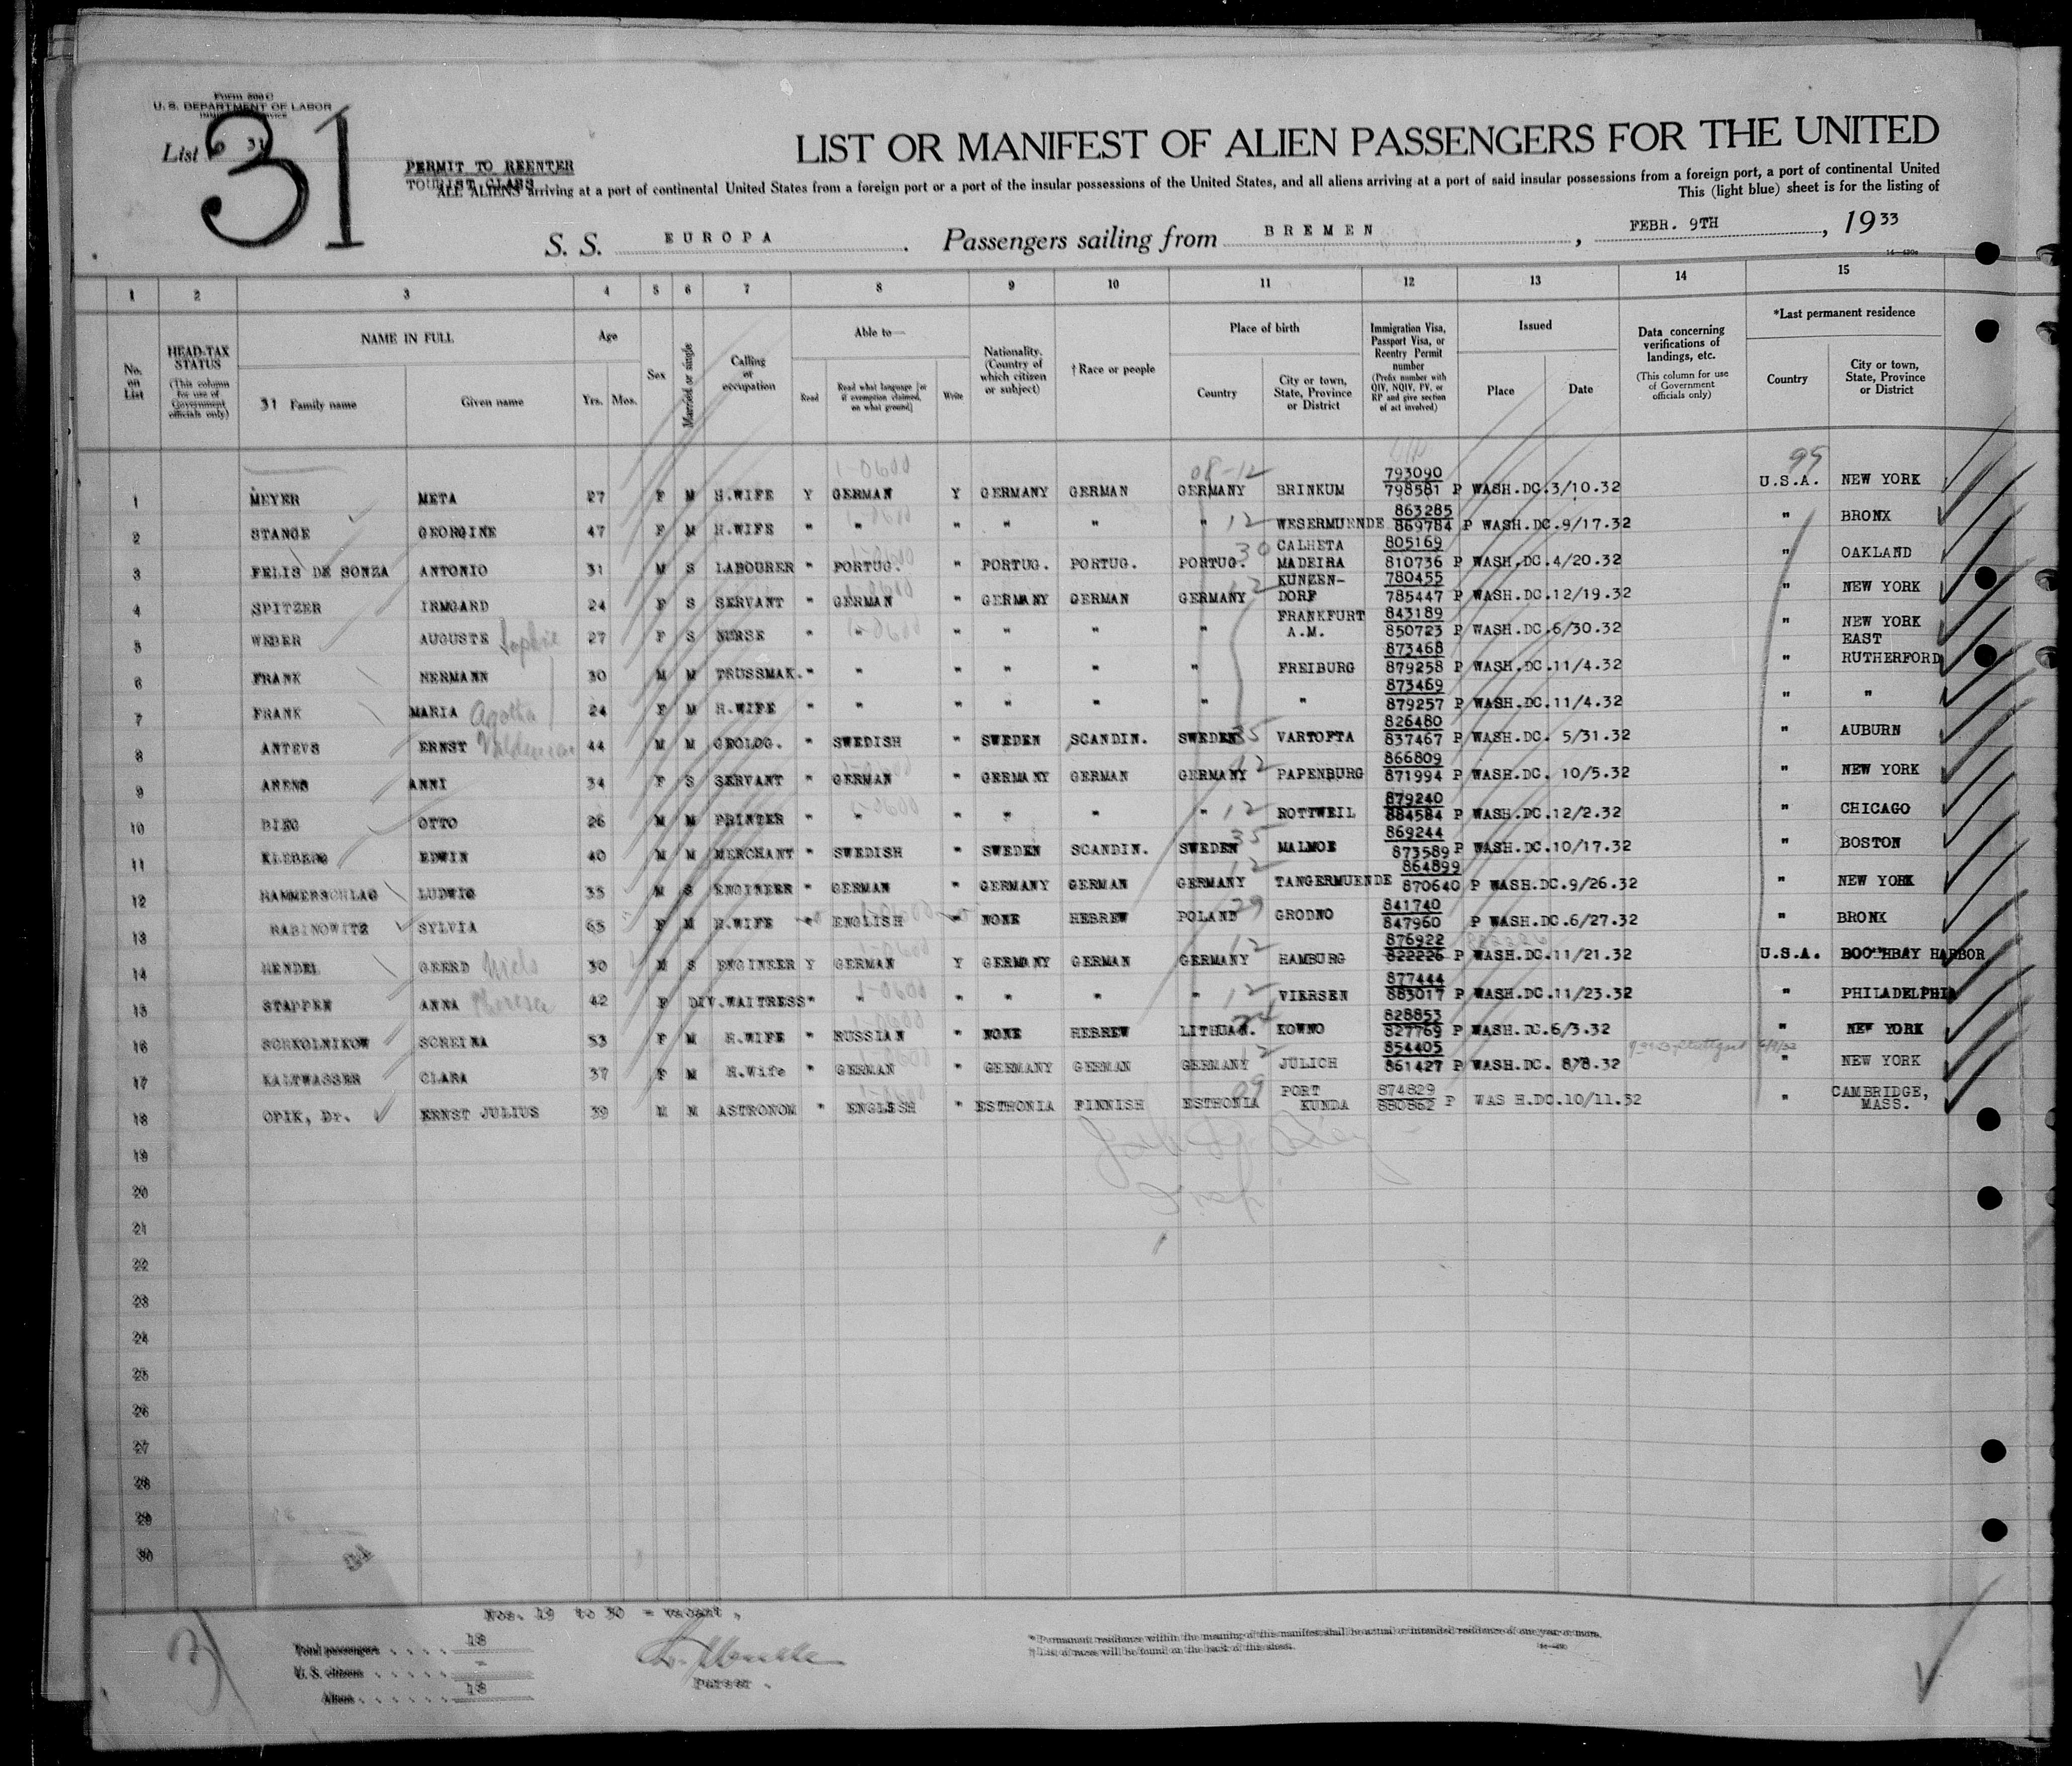 Form 500 C
U. S. DEPARTMENT OF LABOR
List 31
31
PERMIT TO REENTER
TOURIST CLASS
LIST OR MANIFEST OF ALIEN PASSENGERS FOR THE UNITED
ALL ALIENS arriving at a port of continental United States from a foreign port or a port of the insular possessions of the United States, and all aliens arriving at a port of said insular possessions from a foreign port, a port of continental United
This (light blue) sheet is for the listing of
S. S. EUROPA. Passengers sailing from BREMEN, FEBR. 9TH, 1933
1 2 3 4 5 6 7 8 9 10 11 12 13 14 15
No. on List
HEAD-TAX STATUS (This column for use of Government officials only)
NAME IN FULL
31 Family name Given name
Age Yrs. Mos.
Sex
Married or single
Calling or occupation
Able to— Read Read what language [or if exemption claimed, on what ground] Write
Nationality. (Country of which citizen or subject)
†Race or people
Place of birth Country City or town, State, Province or District
Immigration Visa, Passport Visa, or Reentry Permit number (Prefix number with QIV, NQIV, PV, or RP and give section of act involved)
Issued Place Date
Data concerning verifications of landings, etc. (This column for use of Government officials only)
*Last permanent residence Country City or town, State, Province or District
1 MEYER META 27 F M H.WIFE Y GERMAN Y GERMANY GERMAN GERMANY BRINKUM 793090 798581 P WASH.DC.3/10.32 U.S.A. NEW YORK
2 STANGE GEORGINE 47 F M H.WIFE " " " " " " WESERMUENDE 863285 869784 P WASH.DC.9/17.32 " BRONX
3 FELIS DE SONZA ANTONIO 31 M S LABOURER " PORTUG. " PORTUG. PORTUG. PORTUG. CALHETA MADEIRA 805169 810736 P WASH.DC.4/20.32 " OAKLAND
4 SPITZER IRMGARD 24 F S SERVANT " GERMAN " GERMANY GERMAN GERMANY KUNZEN-DORF 780455 785447 P WASH.DC.12/19.32 " NEW YORK
5 WEBER AUGUSTE Sophie 27 F S NURSE " " " " " " FRANKFURT A.M. 843189 850723 P WASH.DC.6/30.32 " NEW YORK
6 FRANK HERMANN 30 M M TRUSSMAK. " " " " " " FREIBURG 873468 879258 P WASH.DC.11/4.32 " EAST RUTHERFORD
7 FRANK MARIA Agatha 24 F M H.WIFE " " " " " " " 873469 879257 P WASH.DC.11/4.32 " "
8 ANTEVS ERNST Valdemar 44 M M GEOLOG. " SWEDISH " SWEDEN SCANDIN. SWEDEN VARTOFTA 826480 837467 P WASH.DC. 5/31.32 " AUBURN
9 ARENS ANNI 34 F S SERVANT " GERMAN " GERMANY GERMAN GERMANY PAPENBURG 866809 871994 P WASH.DC. 10/5.32 " NEW YORK
10 BIEG OTTO 26 M M PRINTER " " " " " " ROTTWEIL 879240 884584 P WASH.DC.12/2.32 " CHICAGO
11 KLEBERG EDWIN 40 M M MERCHANT " SWEDISH " SWEDEN SCANDIN. SWEDEN MALMOE 869244 873589 P WASH.DC.10/17.32 " BOSTON
12 HAMMERSCHLAG LUDWIG 35 M S ENGINEER " GERMAN " GERMANY GERMAN GERMANY TANGERMUENDE 864899 870640 P WASH.DC.9/26.32 " NEW YORK
13 RABINOWITZ SYLVIA 65 F M H.WIFE " ENGLISH " NONE HEBREW POLAND GRODNO 841740 847960 P WASH.DC.6/27.32 " BRONX
14 HENDEL GEERD Niels 30 M S ENGINEER Y GERMAN Y GERMANY GERMAN GERMANY HAMBURG 876922 822226 P WASH.DC.11/21.32 U.S.A. BOOTHBAY HARBOR
15 STAPPEN ANNA Theresa 42 F DIV.WAITRESS " " " " " " VIERSEN 877444 883017 P WASH.DC.11/23.32 " PHILADELPHIA
16 SCHKOLNIKOW SCHEINA 53 F M H.WIFE " RUSSIAN " NONE HEBREW LITHUAN. KOWNO 828853 827769 P WASH.DC.6/3.32 " NEW YORK
17 KALTWASSER CLARA 37 F M H.Wife " GERMAN " GERMANY GERMAN GERMANY JULICH 854405 861427 P WASH.DC. 8/8.32 " NEW YORK
18 OPIK, Dr. ERNST JULIUS 39 M M ASTRONOM " ENGLISH " ESTHONIA FINNISH ESTHONIA PORT KUNDA 874829 880862 P WAS H.DC.10/11.32 " CAMBRIDGE, MASS.
19
20
21
22
23
24
25
26
27
28
29
30
Nos. 19 to 30 = vacant.
Total passengers . . . . 18
U. S. citizens . . . . -
Aliens . . . . . . 18
Purser.
* Permanent residence within the meaning of this manifest shall be actual or intended residence of one year or more.
† List of races will be found on the back of this sheet.